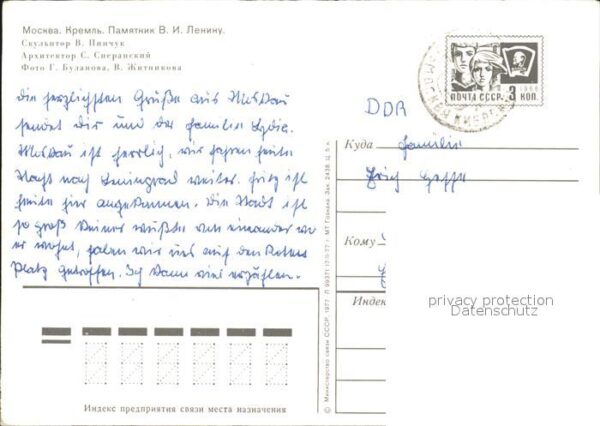 Москва. Кремль. Памятник В. И. Ленину.
Скульптор В. Пинчук
Архитектор С. Сперанский
Фото Г. Буланова, В. Житникова
die herzlichsten Grüße aus Moskau
sendet dir und der Familie Lydia.
Moskau ist herrlich, wir fahren heute
Nacht nach Leningrad weiter. Fritz ist
heute hier angekommen. Die Stadt ist
so groß keiner wußte von einander wo
er wohnt, haben wir uns auf den Roten
Platz getroffen. Ich kann viel erzählen.
ПОЧТА СССР
3 КОП
1966
DDR
Куда Familie
Erich
Кому
Индекс
privacy protection
Datenschutz
© Министерство связи СССР, 1977
МТ Гознака. Зак. 2438. Ц. 5 к.
Индекс предприятия связи места назначения